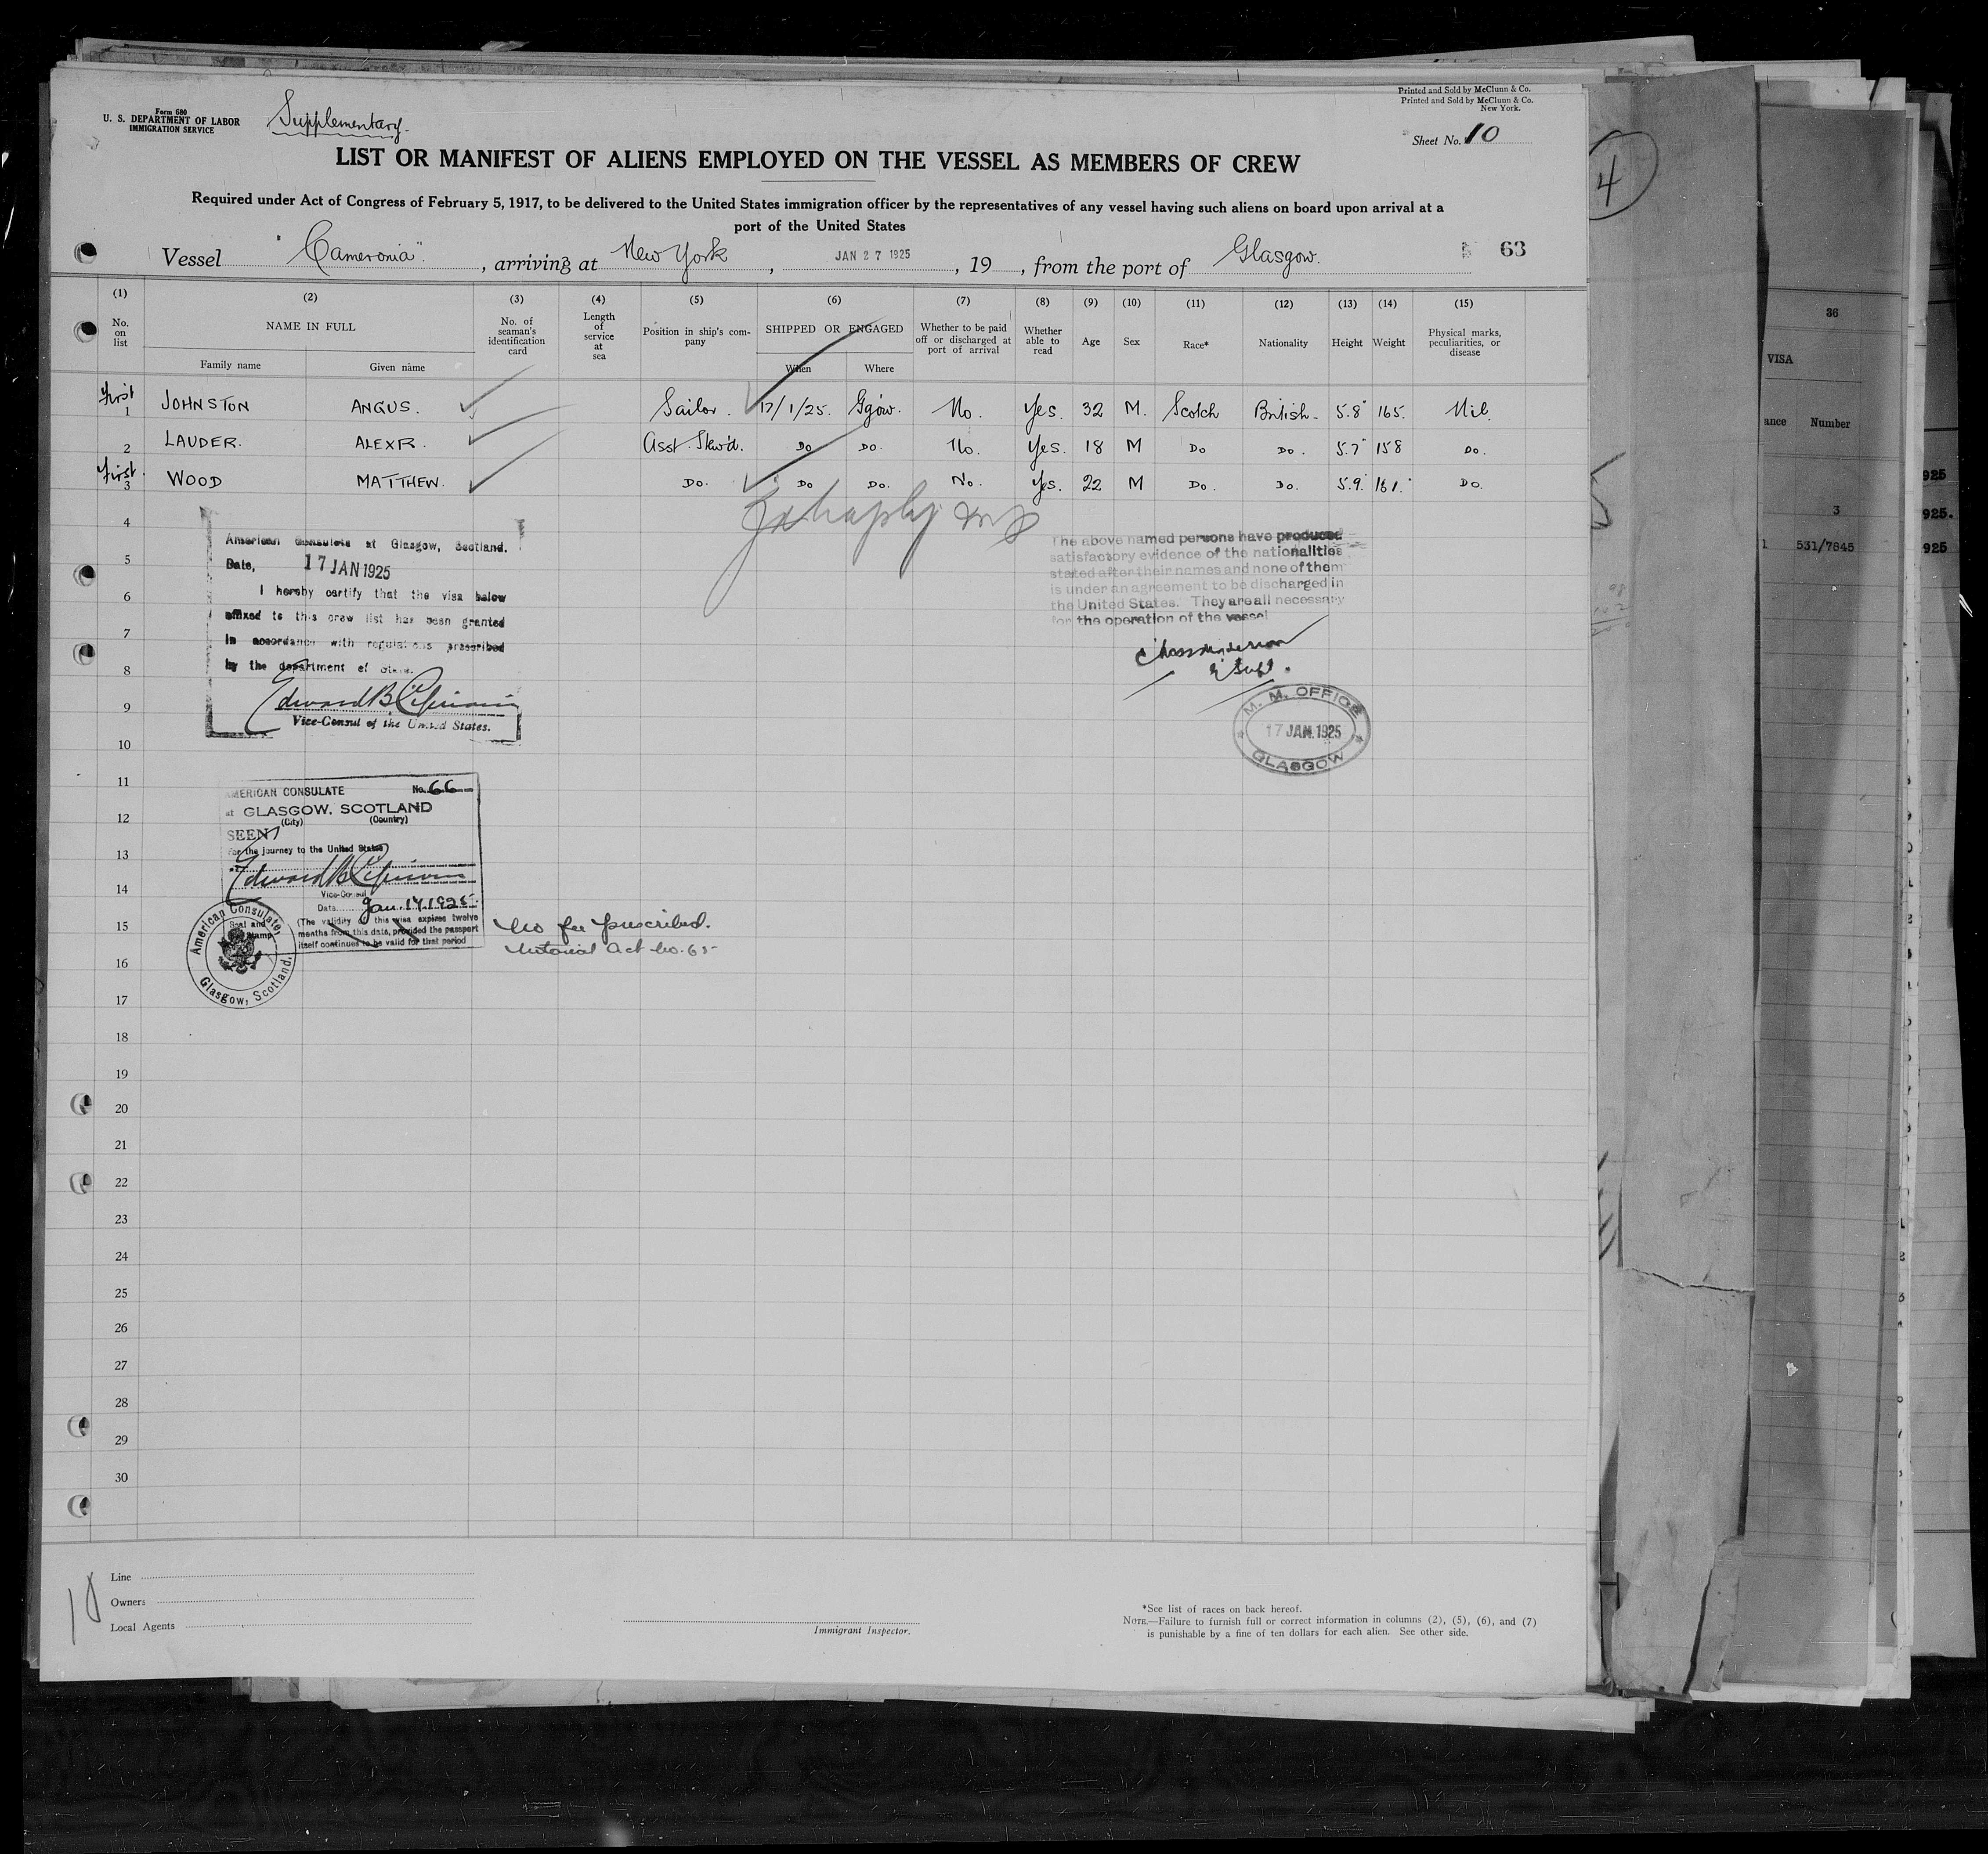 Form 680
U. S. DEPARTMENT OF LABOR
IMMIGRATION SERVICE
Supplementary.
Printed and Sold by McClunn & Co.
Printed and Sold by McClunn & Co.
New York.
Sheet No. 10
LIST OR MANIFEST OF ALIENS EMPLOYED ON THE VESSEL AS MEMBERS OF CREW
Required under Act of Congress of February 5, 1917, to be delivered to the United States immigration officer by the representatives of any vessel having such aliens on board upon arrival at a
port of the United States
Vessel "Cameronia", arriving at New York, JAN 27 1925, 19 , from the port of Glasgow. 63
(1) (2) (3) (4) (5) (6) (7) (8) (9) (10) (11) (12) (13) (14) (15)
No. on list
NAME IN FULL
Family name Given name
No. of seaman's identification card
Length of service at sea
Position in ship's company
SHIPPED OR ENGAGED
When Where
Whether to be paid off or discharged at port of arrival
Whether able to read
Age
Sex
Race*
Nationality
Height
Weight
Physical marks, peculiarities, or disease
First 1 JOHNSTON ANGUS. Sailor. 17/1/25. Ggow. No. Yes. 32 M. Scotch British 5.8" 165. Nil.
2 LAUDER. ALEXR. Asst. Stew'd. Do Do. No. Yes. 18 M Do Do. 5.7" 158 Do.
First. 3 WOOD MATTHEW. Do. Do Do. No. Yes. 22 M Do. Do. 5.9. 161. Do.
4
5
6
7
8
9
10
11
12
13
14
15
16
17
18
19
20
21
22
23
24
25
26
27
28
29
30
American Consulate at Glasgow, Scotland.
Date, 17 JAN 1925
I hereby certify that the visa below
affixed to this crew list has been granted
in accordance with regulations prescribed
by the department of state.
Edward B.
Vice-Consul of the United States.
The above named persons have produced
satisfactory evidence of the nationalities
stated after their names and none of them
is under an agreement to be discharged in
the United States. They are all necessary
for the operation of the vessel
M. M. OFFICE
17 JAN. 1925
GLASGOW
AMERICAN CONSULATE No. 66
at GLASGOW, SCOTLAND
(City) (Country)
SEEN
For the journey to the United States
Edward B.
Vice-Consul
Date Jan. 17, 1925.
(The validity of this visa expires twelve
months from this date, provided the passport
itself continues to be valid for that period
American Consulate,
Seal and
Stamp
Glasgow, Scotland.
No fee prescribed.
Notarial Act No. 65
Line
Owners
Local Agents
10
Immigrant Inspector.
*See list of races on back hereof.
NOTE.—Failure to furnish full or correct information in columns (2), (5), (6), and (7)
is punishable by a fine of ten dollars for each alien. See other side.
4
36
VISA
ance Number
3
1 531/7845
925
925.
925